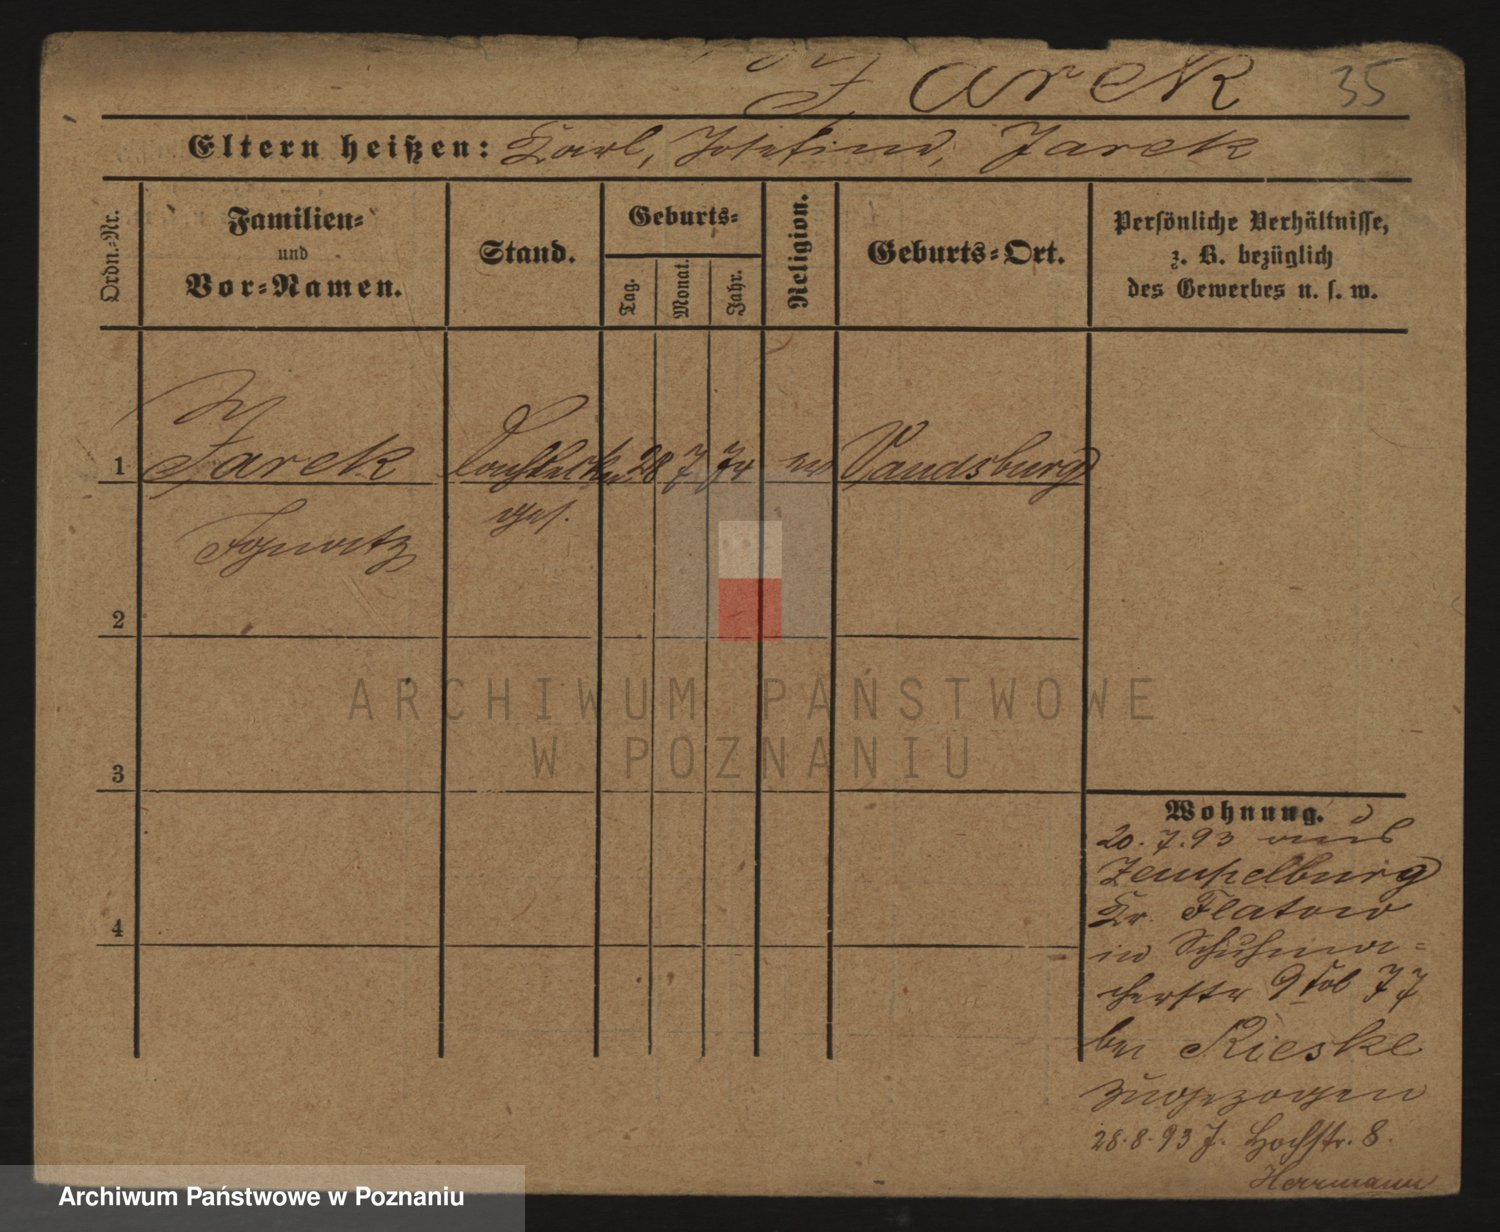 Jarek 35
Eltern heißen: Karl, Josefine, Jarek
Ordn.-Nr.
Familien-
und
Vor-Namen.
Stand.
Geburts-
Tag.
Monat.
Jahr.
Religion.
Geburts-Ort.
Persönliche Verhältnisse,
z. B. bezüglich
des Gewerbes u. s. w.
1 Jarek 28 7 Vandsburg
ges.
Ignatz
2
3
4
ARCHIWUM PAŃSTWOWE
W POZNANIU
Wohnung.
20.7.93 aus
Zempelburg
Kr. Flatow
in Schuhma-
cherstr 9
bei Rieske
zugezogen
28.8.93 J. Hochstr. 8.
Herrmann
Archiwum Państwowe w Poznaniu